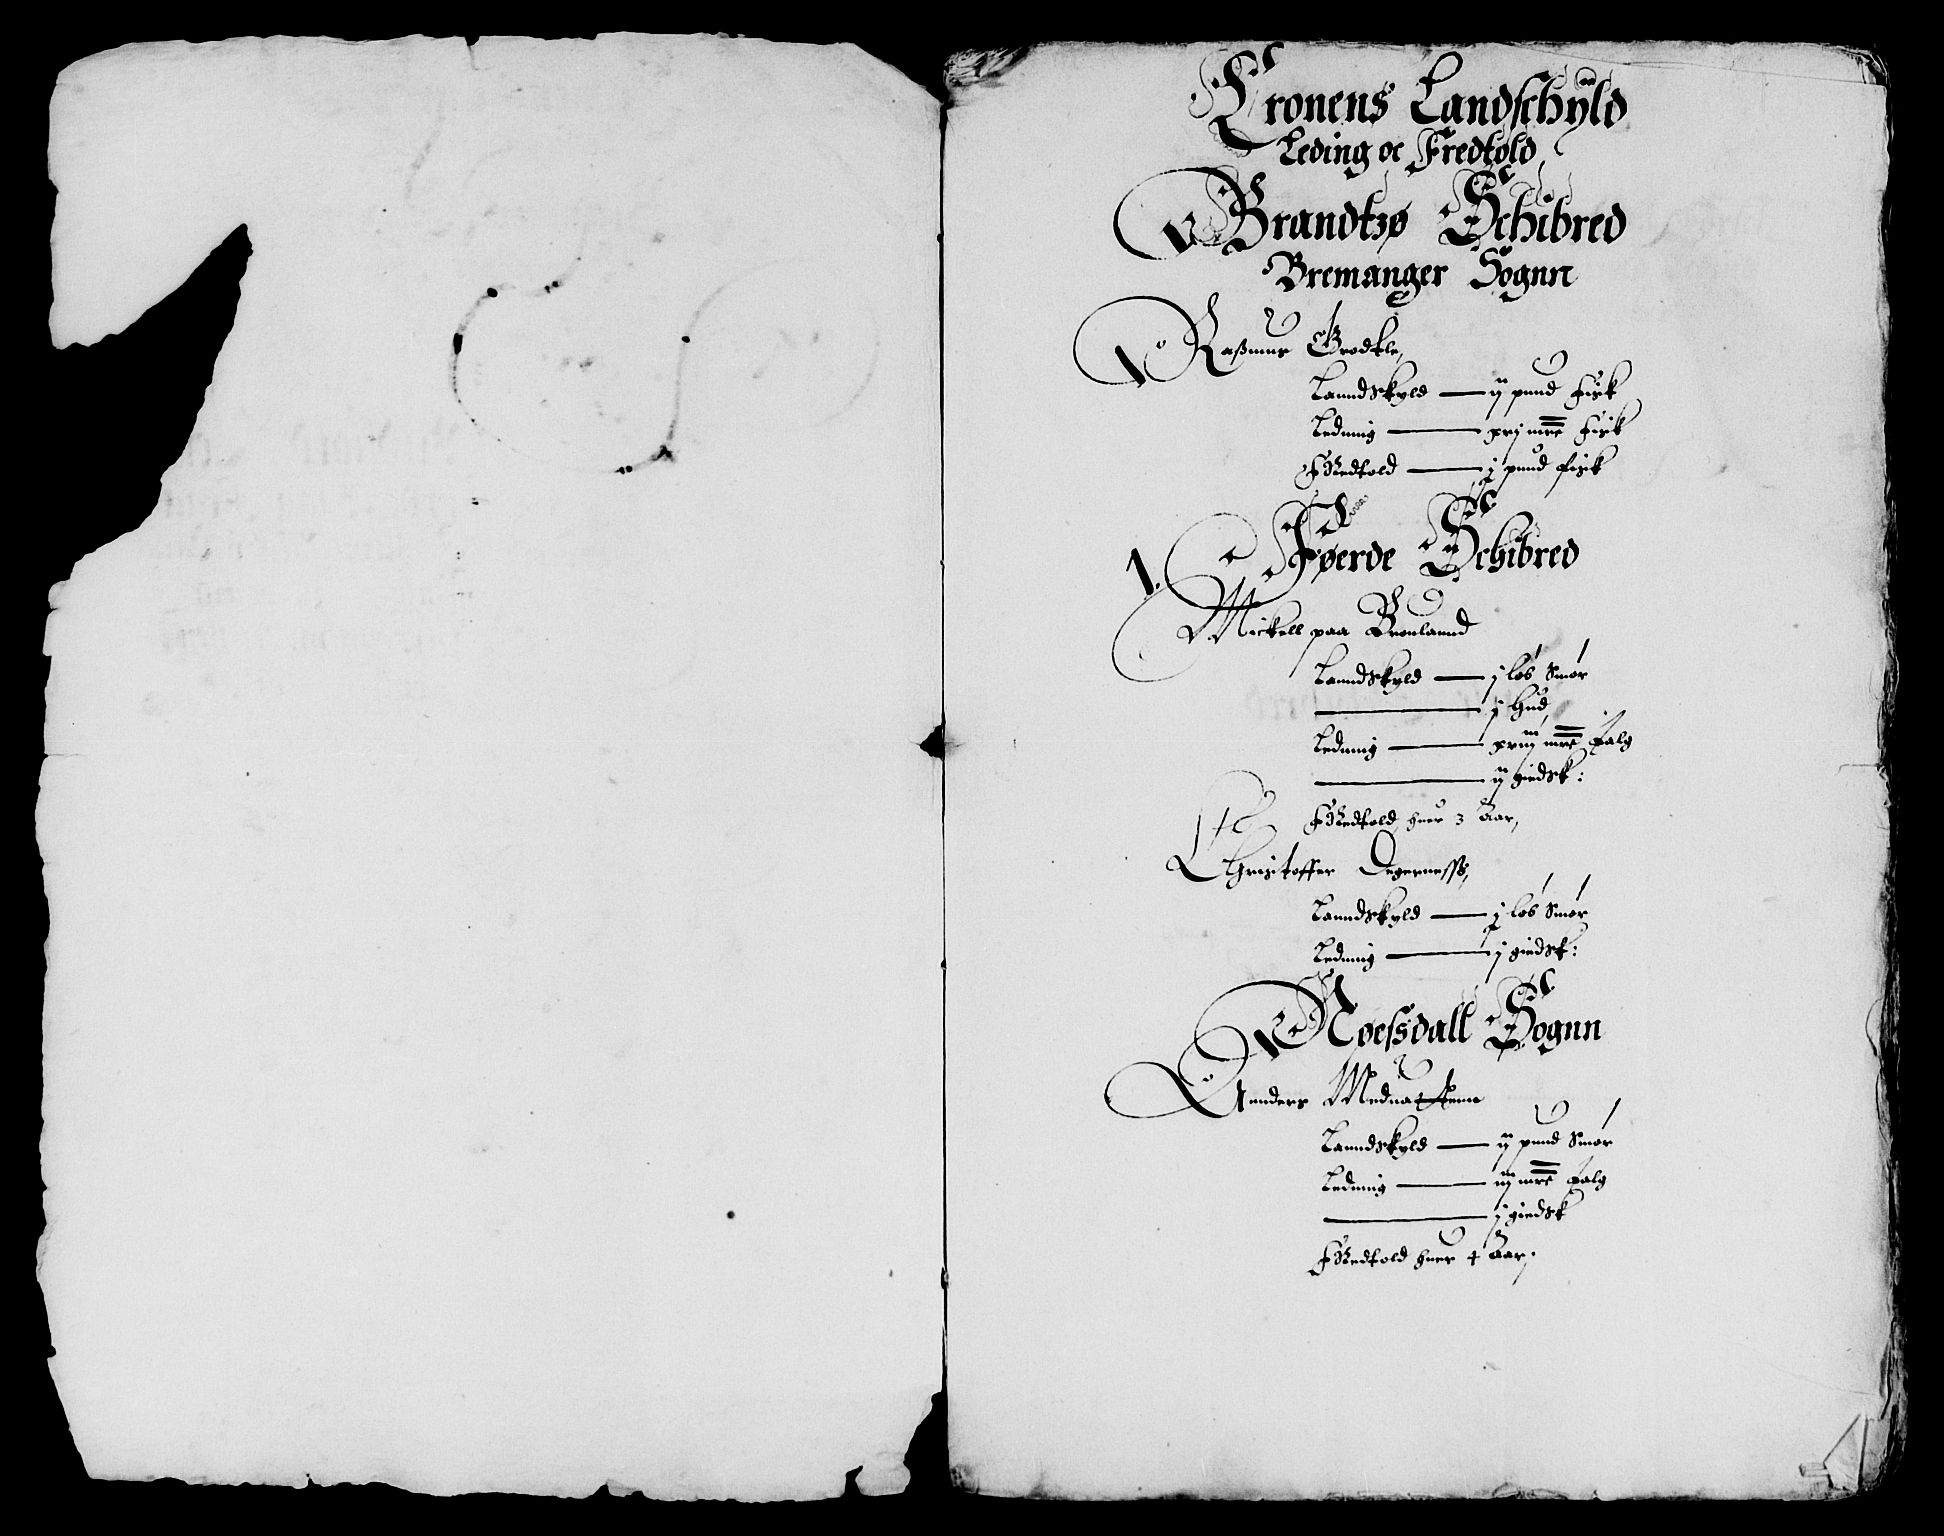 Cronens Landschÿld
Leding oc Fredtold
Brandtzø Schibred
Bremanger Sognn
Raßmus Grodtle,
Lanndskyld — ij pund Fisk
Leding — xxj mrc Fisk
FRedtold — j pund fisk
1. Føerde Schibred
Mickell paa
Lanndskyld — j løb Smør
— j Hud,
Leding — xviij mrc Talg
— ij giedsk:
FRedtold huer 3 Aar,
Christoffer Degernesss,
Lanndskyld — j løb Smør
Leding — j giedsk:
Nøessdall Sognn
Anders
Lanndskyld — ij pund Smør
Leding — iij mrc Talg
— j giedsk
FRedtold huer 4 Aar,